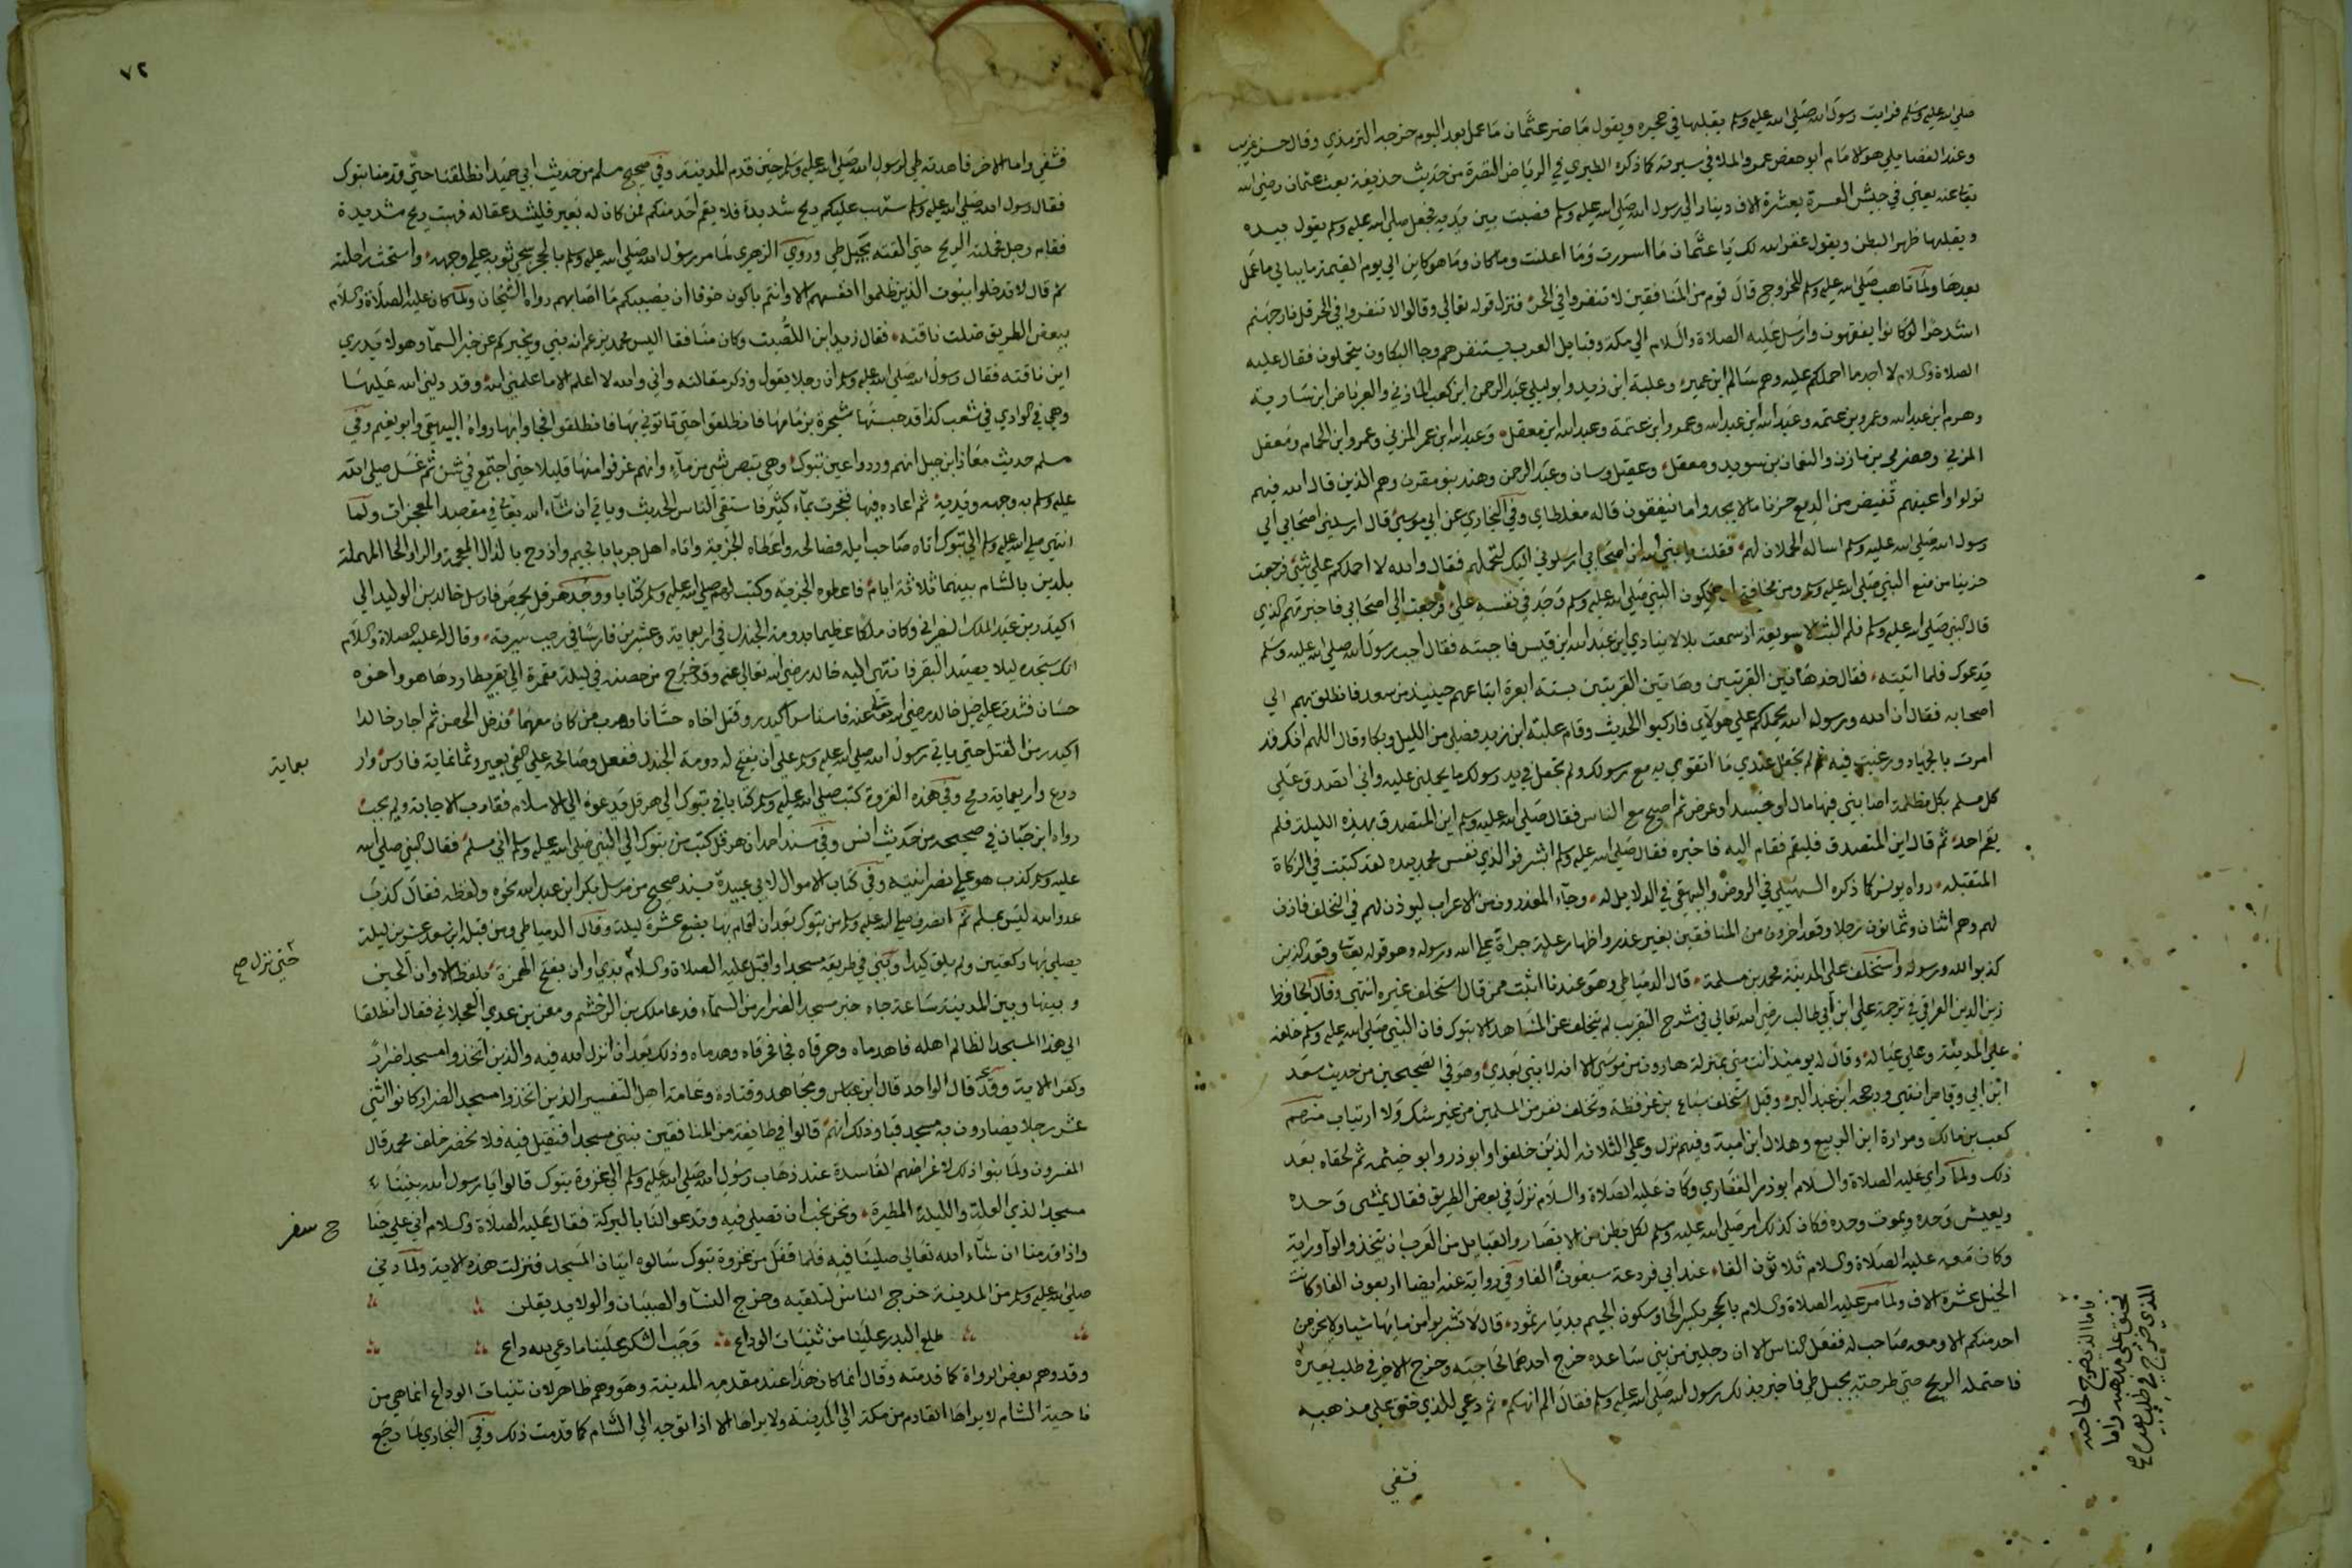 صلى الله عليه وسلم فرايت رسول الله صلى الله عليه وسلم يقبلها في حجره ويقول ما ضر عثمان ما عمل بعد اليوم خرجه الترمذي وقال حسن غريب
وعند الفضايلي هو الامام ابو حفص عمر والملا في سيرته كما ذكره الطبري في الرياض النضرة من حديث حذيفة بعث عثمان رضي الله
تعا عنه يعني في جيش العسرة بعشرة الاف دينار الى رسول الله صلى الله عليه وسلم فصبت بين يديه فجعل صلى الله عليه وسلم يقول بيده
ويقلبها ظهرا لبطن ويقول غفر الله لك يا عثمان ما اسررت وما اعلنت وما كان وما هو كاين الى يوم القيمة ما يبالي ما عمل
بعدها ولما تاهب صلى الله عليه وسلم للخروج قال قوم من المنافقين لا تنفروا في الحر فنزل قوله تعالى وقالوا لا تنفروا في الحر قل نار جهنم
اشد حرا لو كانوا يفقهون وارسل عليه الصلاة والسلام الى مكة وقبايل العرب يستنفرهم وجا البكاون يستحملون فقال عليه
الصلاة والسلام لا اجد ما احملكم عليه وهم سالم ابن عمير وعلبة ابن زيد وابو ليلى عبد الرحمن ابن كعب المازني والعرباض ابن سارية
وهرم ابن عبد الله وعمرو بن عتمة وعبد الله ابن عبد الله وعمرو ابن عتمة وعبد الله ابن معقل وعبد الله ابن عمر المزني وعمرو ابن الحمام ومعقل
المزني وحضرمي بن مازن والنعمان بن سويد ومعقل وعقيل وسنان وعبد الرحمن وهند بنو مقرن وهم الذين قال الله فيهم
تولوا واعينهم تفيض من الدمع حزنا ما لا يجدوا ما ينفقون قاله مغلطاي وفي البخاري عن ابي موسى قال ارسلني اصحابي الى
رسول الله صلى الله عليه وسلم اساله الحملان لهم فقلت يا نبي الله ان اصحابي ارسلوني اليك لتحملهم فقال والله لا احملكم على شئ فرجعت
حزينا من منع النبي صلى الله عليه وسلم ومن مخافة ان يكون النبي صلى الله عليه وسلم وجد في نفسه علي فرجعت الى اصحابي فاخبرتهم الذي
قال النبي صلى الله عليه وسلم فلم البث الا سويعة اذ سمعت بلالا ينادي اين عبد الله ابن قيس فاجبته فقال اجب رسول الله صلى الله عليه وسلم
يدعوك فلما اتيته فقال خذ هاتين القرينتين وهاتين القرينتين بستة ابعرة ابتاعهم حينيذ من سعد فانطلق بهم الى
اصحابه فقال ان الله ورسوله الله يحملكم على هولاي فاركبوا الحديث وقام علبة ابن زيد فصلى من الليل وبكا وقال اللهم انك قد
امرت بالجهاد ورغبت فيه ثم لم تجعل عندي ما اتقوى به مع رسولك ولم تجعل في يد رسولك ما يحملني عليه واني اتصدق على
كل مسلم بكل مظلمة اصابني فيها مال او جسد او عرض ثم اصبح مع الناس فقال صلى الله عليه وسلم اين المتصدق بهذه الليلة فلم
يقم احد ثم قال اين المتصدق فليقم فقام اليه فاخبره فقال صلى الله عليه وسلم ابشر فوالذي نفس محمد بيده لقد كتبت في الزكاة
المتقبلة رواه يونس كما ذكره السهيلي في الروض والبيهقي في الدلايل له وجآء المعذرون من الاعراب ليوذن لهم في التخلف فاذن
لهم وهم اثنان وثمانون رجلا وقعد اخرون من المنافقين بغير عذر واظهار علة جراة على الله ورسوله وهو قوله تعا وقعد الذين
كذبوا الله ورسوله واستخلف على المدينة محمد بن مسلمة قال الدمياطي وهو عندنا اثبت ممن قال استخلف غيره انتهى وقال الحافظ
زين الدين العراقي في ترجمة علي ابن ابي طالب رضي الله تعالى في شرح التقريب لم يتخلف عن المشاهد الا تبوك فان النبي صلى الله عليه وسلم خلفه
على المدينة وعلى عياله وقال له يوميذ انت مني بمنزلة هارون من موسى الا انه لا نبي بعدي وهو في الصحيحين من حديث سعد
ابن ابي وقاص انتهى ورجحه ابن عبد البر وقيل استخلف سباع بن عرفطة وتخلف نفر من المسلمين من غير شك ولا ارتياب منهم
كعب بن مالك ومرارة ابن الربيع وهلال ابن امية وفيهم نزل وعلى الثلاثة الذين خلفوا وابو ذر وابو خيثمة ثم لحقاه بعد
ذلك ولما راى عليه الصلاة والسلام ابو ذر الغفاري وكان عليه الصلاة والسلام نزل في بعض الطريق فقال يمشي وحده
ويعيش وحده ويموت وحده فكان كذلك امر صلى الله عليه وسلم لكل بطن من الانصار والقبايل من العرب ان يتخذوا لوآ وراية
وكان معه عليه الصلاة والسلام ثلاثون الفا عند ابي زرعة سبعون الفا وفي رواية عنه ايضا اربعون الفا وكانت
الخيل عشرة الاف ولما مر عليه الصلاة والسلام بالحجر بكسر الحا وسكون الجيم بديار ثمود قال لا تشربوا من مايها شيا ولا يخرجن
احد منكم الا ومعه صاحب له ففعل الناس الا ان رجلين من بني ساعده خرج احدهما لحاجته وخرج الاخر في طلب بعيره
فاحتمله الريح حتى طرحته بجبل طي فاخبر بذلك رسول الله صلى الله عليه وسلم فقال الم انهكم ثم دعى للذي خنق على مذهبه
فشفي
فاما الذي خرج لحاجته
خنق على مذهبه واما
الذي خرج في طلب بعيره صح
٧٢
فشفي واما الاخر فاهدته طي لرسول الله صلى الله عليه وسلم حين قدم المدينة وفي صحيح مسلم من حديث ابي حميد انطلقنا حتى قدمنا تبوك
فقال رسول الله صلى الله عليه وسلم ستهب عليكم ريح شديدة فلا يقم احد منكم فمن كان له بعير فليشد عقاله فهبت ريح شديدة
فقام رجل فحملته الريح حتى القته بجبل طي وروى الزهري لما مر رسول الله صلى الله عليه وسلم بالحجر سجى ثوبه على وجهه واستحث راحلته
ثم قال لا تدخلوا بيوت الذين ظلموا انفسهم الا وانتم باكون خوفا ان يصيبكم ما اصابهم رواه الشيخان ولما كان عليه الصلاة والسلام
ببعض الطريق ضلت ناقته فقال زيد ابن اللصيت وكان منافقا اليس محمد يزعم انه نبي ويخبركم عن خبر السمآ وهو لا يدري
اين ناقته فقال رسول الله صلى الله عليه وسلم ان رجلا يقول وذكر مقالته واني والله لا اعلم الا ما علمني الله وقد دلني الله عليها
وهي في الوادي في شعب كذا قد حبستها شجرة بزمامها فانطلقوا حتى تاتوني بها فانطلقوا فجاوا بها رواه البيهقي وابو نعيم وفي
مسلم حديث معاذ ابن جبل انهم وردوا عين تبوك وهي تبض بشي من مآء وانهم غرفوا منها قليلا حتى اجتمع في شن ثم غسل صلى الله
عليه وسلم به وجهه ويديه ثم اعاده فيها فجرت بمآء كثير فاستقى الناس الحديث وياتي ان شآء الله تعالى في مقصد المعجزات ولما
انتهى صلى الله عليه وسلم الى تبوك اتاه صاحب ايله فصالحه واعطاه الجزية واتاه اهل جربا بالجيم واذرح بالذال المعجمة والرا والحا المهملة
بلدين بالشام بينهما ثلاثة ايام فاعطوه الجزية وكتب لهم صلى الله عليه وسلم كتابا ووجد هرقل بحمص فارسل خالد بن الوليد الى
اكيدر بن عبد الملك النصراني وكان ملكا عظيما بدومة الجندل في اربعماية وعشرين فارسا في رجب سرية وقال له عليه الصلاة والسلام
انك ستجده ليلا يصيد البقر فانتهى اليه خالد رضي الله تعالى عنه وقد خرج من حصنه في ليلة مقمرة الى بقر يطاردها هو واخوه
حسان فشدت عليه خيل خالد رضي الله تعا عنه فاستاسر اكيدر وقتل اخاه حسانا وهرب من كان معهما فدخل الحصن ثم اجار خالد
اكيدر من القتل حتى ياتي رسول الله صلى الله عليه وسلم على ان يفتح له دومة الجندل ففعل وصالحه على الفي بعير وثمانماية فارس وار
بعماية
درع واربعماية رمح وفي هذه الغزوة كتب صلى الله عليه وسلم كتابا في تبوك الى هرقل يدعوه الى الاسلام فقارب الاجابة ولم يجب
رواه ابن حبان في صحيحه من حديث انس وفي مسند احمد ان هرقل كتب من تبوك الى النبي صلى الله عليه وسلم اني مسلم فقال النبي صلى الله
عليه وسلم كذب هو على نصرانيته وفي كتاب الاموال لابي عبيدة بسند صحيح من مرسل بكر ابن عبد الله نحوه ولفظه فقال كذب
عدو الله ليس بمسلم ثم انصرف صلى الله عليه وسلم من تبوك بعد ان اقام بها بضع عشرة ليلة وقال الدمياطي ومن قبله ابن سعد عشرين ليلة
يصلي بها ركعتين ولم يلق كيدا وبنى في طريقه مسجدا واقبل عليه الصلاة والسلام بذي اوان بفتح الهمزة بلفظ الاوان الحين
حتى نزل صح
وبينها وبين المدينة ساعة جاه خبر مسجد الضرار من السمآء فدعا مالك بن الدخشم ومعن بن عدي العجلاني فقال انطلقا
الى هذا المسجد الظالم اهله فاهدماه وحرقاه فخرجا فحرقاه وهدماه وذلك بعد ان انزل الله فيه والذين اتخذوا مسجدا ضرارا
وكفرا الاية وقد قال الواحد قال ابن عباس ومجاهد وقتادة وعامة اهل التفسير الذين اتخذوا مسجد الضرار كانوا اثني
عشر رجلا يضارون به مسجد قبا وذلك انهم قالوا في طايفة من المنافقين نبني مسجدا فنقيل فيه فلا نحضر خلف محمد قال
المفسرون ولما بنوا ذلك لاغراضهم الفاسدة عند ذهاب رسول الله صلى الله عليه وسلم الى غزوة تبوك قالوا يا رسول الله بنينا
مسجدا لذي العلة والليلة المطيرة ونحن نحب ان تصلي فيه وتدعو لنا بالبركة فقال عليه الصلاة والسلام اني على جنا
ح سفر
واذا قدمنا ان شآء الله تعالى صلينا فيه فلما قفل من غزوة تبوك سالوه اتيان المسجد فنزلت هذه الاية ولما دنى
صلى الله عليه وسلم من المدينة خرج الناس لتلقيه وخرج النسآ والصبيان والولايد يقلن
طلع البدر علينا من ثنيات الوداع وجب الشكر علينا ما دعى لله داع
وقد وهم بعض الرواة كما قدمته وقال انما كان هذا عند مقدمه المدينة وهو وهم ظاهر لان ثنيات الوداع انما هي من
ناحية الشام لا يراها القادم من مكة الى المدينة ولا يراها الا اذا توجه الى الشام كما قدمت ذلك وفي البخاري لما رجع